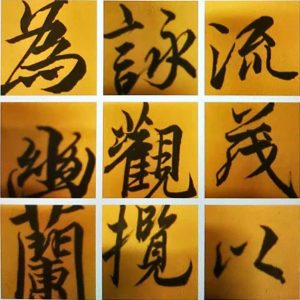 為詠流
幽觀茂
蘭攬以